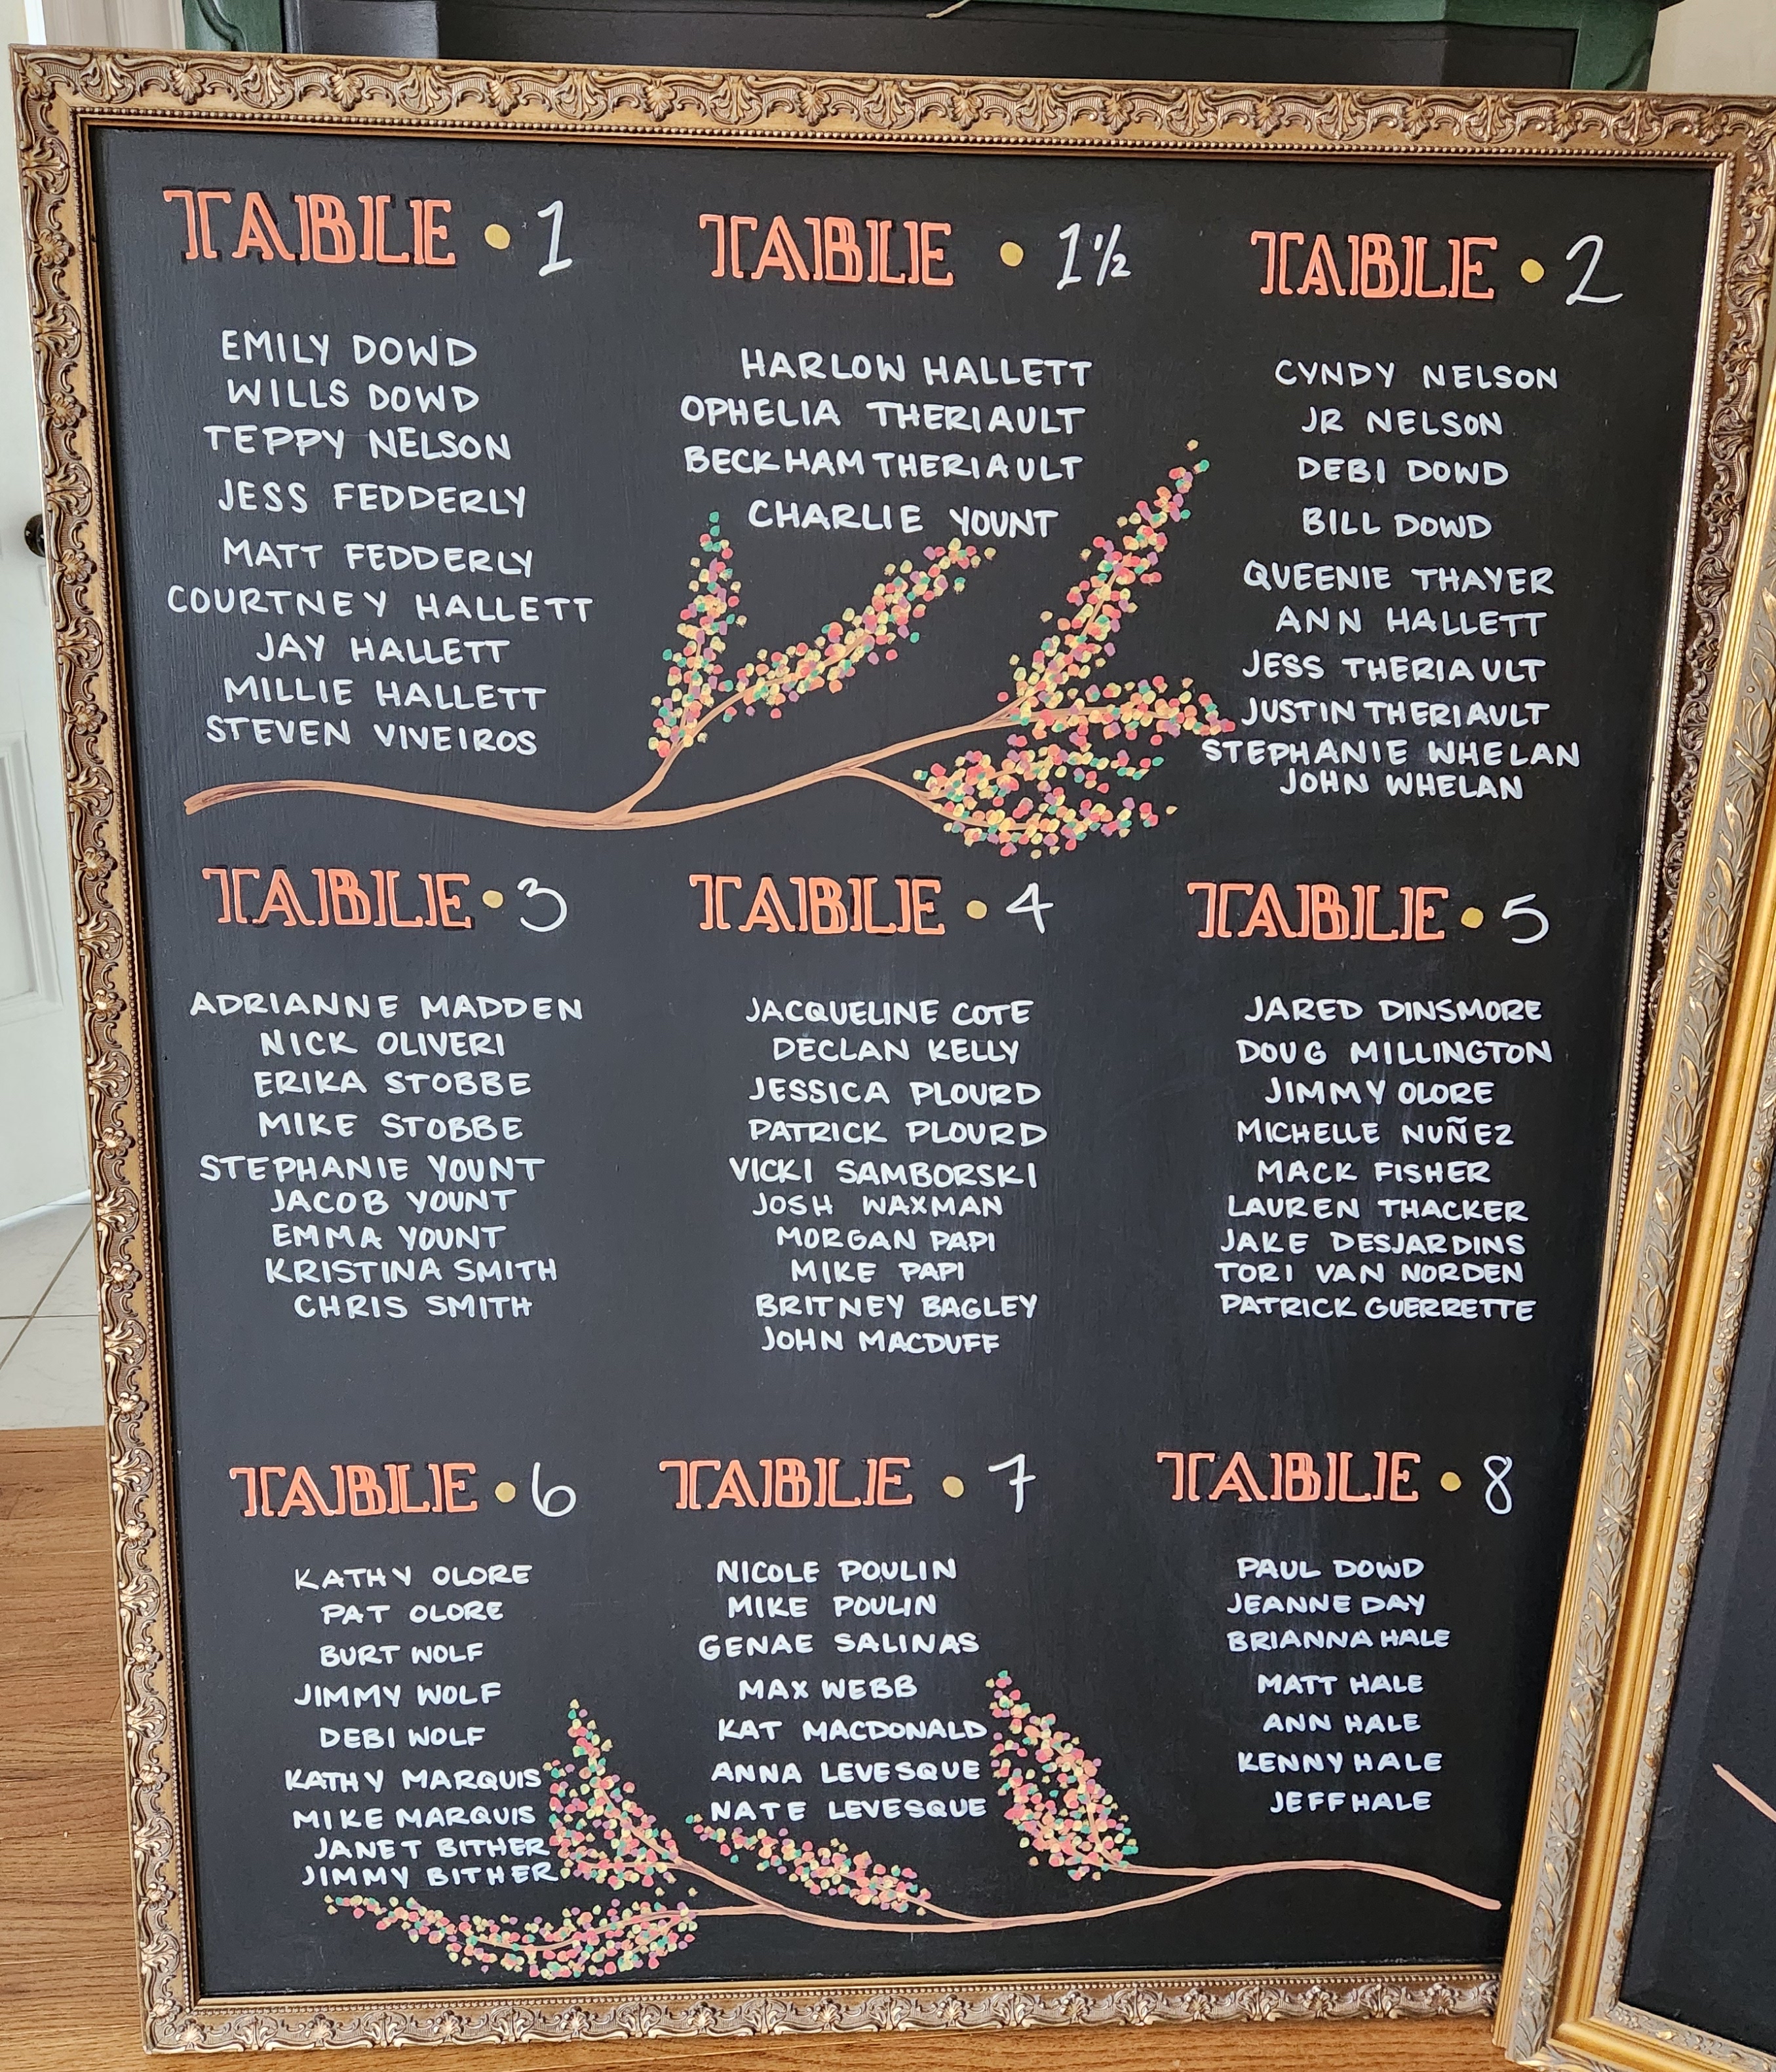 TABLE • 1
EMILY DOWD
WILLS DOWD
TEPPY NELSON
JESS FEDDERLY
MATT FEDDERLY
COURTNEY HALLETT
JAY HALLETT
MILLIE HALLETT
STEVEN VIVEIROS
TABLE • 1½
HARLOW HALLETT
OPHELIA THERIAULT
BECKHAM THERIAULT
CHARLIE YOUNT
TABLE • 2
CYNDY NELSON
JR NELSON
DEBI DOWD
BILL DOWD
QUEENIE THAYER
ANN HALLETT
JESS THERIAULT
JUSTIN THERIAULT
STEPHANIE WHELAN
JOHN WHELAN
TABLE • 3
ADRIANNE MADDEN
NICK OLIVERI
ERIKA STOBBE
MIKE STOBBE
STEPHANIE YOUNT
JACOB YOUNT
EMMA YOUNT
KRISTINA SMITH
CHRIS SMITH
TABLE • 4
JACQUELINE COTE
DECLAN KELLY
JESSICA PLOURD
PATRICK PLOURD
VICKI SAMBORSKI
JOSH WAXMAN
MORGAN PAPI
MIKE PAPI
BRITNEY BAGLEY
JOHN MACDUFF
TABLE • 5
JARED DINSMORE
DOUG MILLINGTON
JIMMY OLORE
MICHELLE NUÑEZ
MACK FISHER
LAUREN THACKER
JAKE DESJARDINS
TORI VAN NORDEN
PATRICK GUERRETTE
TABLE • 6
KATHY OLORE
PAT OLORE
BURT WOLF
JIMMY WOLF
DEBI WOLF
KATHY MARQUIS
MIKE MARQUIS
JANET BITHER
JIMMY BITHER
TABLE • 7
NICOLE POULIN
MIKE POULIN
GENAE SALINAS
MAX WEBB
KAT MACDONALD
ANNA LEVESQUE
NATE LEVESQUE
TABLE • 8
PAUL DOWD
JEANNE DAY
BRIANNA HALE
MATT HALE
ANN HALE
KENNY HALE
JEFF HALE